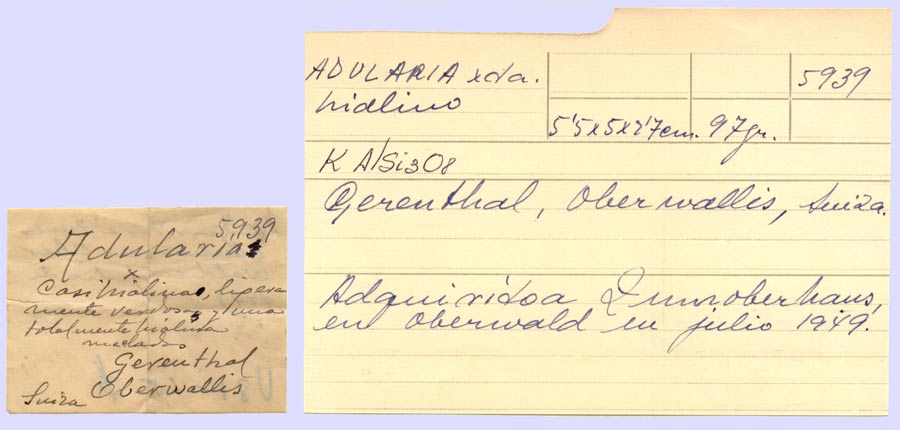 5939
Adularia
Casi hialina, ligera
mente verdosa, y una
totalmente hialina
macladas
Gerenthal
Oberwallis
Suiza
ADULARIA xda.
hialino
5939
5'5x5x2'7cm. 97gr.
KAlSi3O8
Gerenthal, Oberwallis, Suiza.
Adquirido a
en Oberwald en julio 1949.